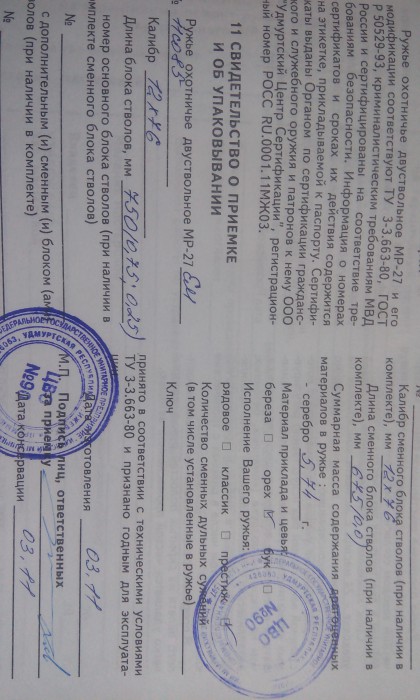 Ружье охотничье двуствольное МР-27 и его
модификации соответствуют ТУ 3-3.663-80, ГОСТ
Р 50529-93, криминалистическим требованиям МВД
России и сертифицированы на соответствие тре-
бованиям безопасности. Информация о номерах
сертификатов и сроках их действия содержится
на этикетке, прикладываемой к паспорту. Сертифи-
каты выданы Органом по сертификации гражданс-
кого и служебного оружия и патронов к нему ООО
"Удмуртский Центр Сертификации", регистрацион-
ный номер РОСС RU.0001.11МЖ03.
11 СВИДЕТЕЛЬСТВО О ПРИЕМКЕ
И ОБ УПАКОВЫВАНИИ
Ружье охотничье двуствольное МР-27 ЕМ
№
Калибр 12х76
Длина блока стволов, мм 750(0,75; 0,25)
номер основного блока стволов (при наличии в
комплекте сменного блока стволов)
№
с дополнительным (и) сменным (и) блоком (ами)
стволов (при наличии в комплекте)
№
№
Калибр сменного блока стволов (при наличии в
комплекте), мм 12х76
Длина сменного блока стволов (при наличии в
комплекте), мм 675
Суммарная масса содержания драгоценных
материалов в ружье:
- серебро 5,74 г.
Материал приклада и цевья:
береза □ орех бук □
Исполнение Вашего ружья:
рядовое □ классик □ престиж
Количество сменных дульных сужений
(в том числе установленные в ружье)
Ключ
принято в соответствии с техническими условиями
ТУ 3-3.663-80 и признано годным для эксплуата-
ции.
Дата изготовления 03.11
М.П. Подпись лиц, ответственных
за приемку
Дата консервации 03.11
ЦВО
№90
ЦВО
№90